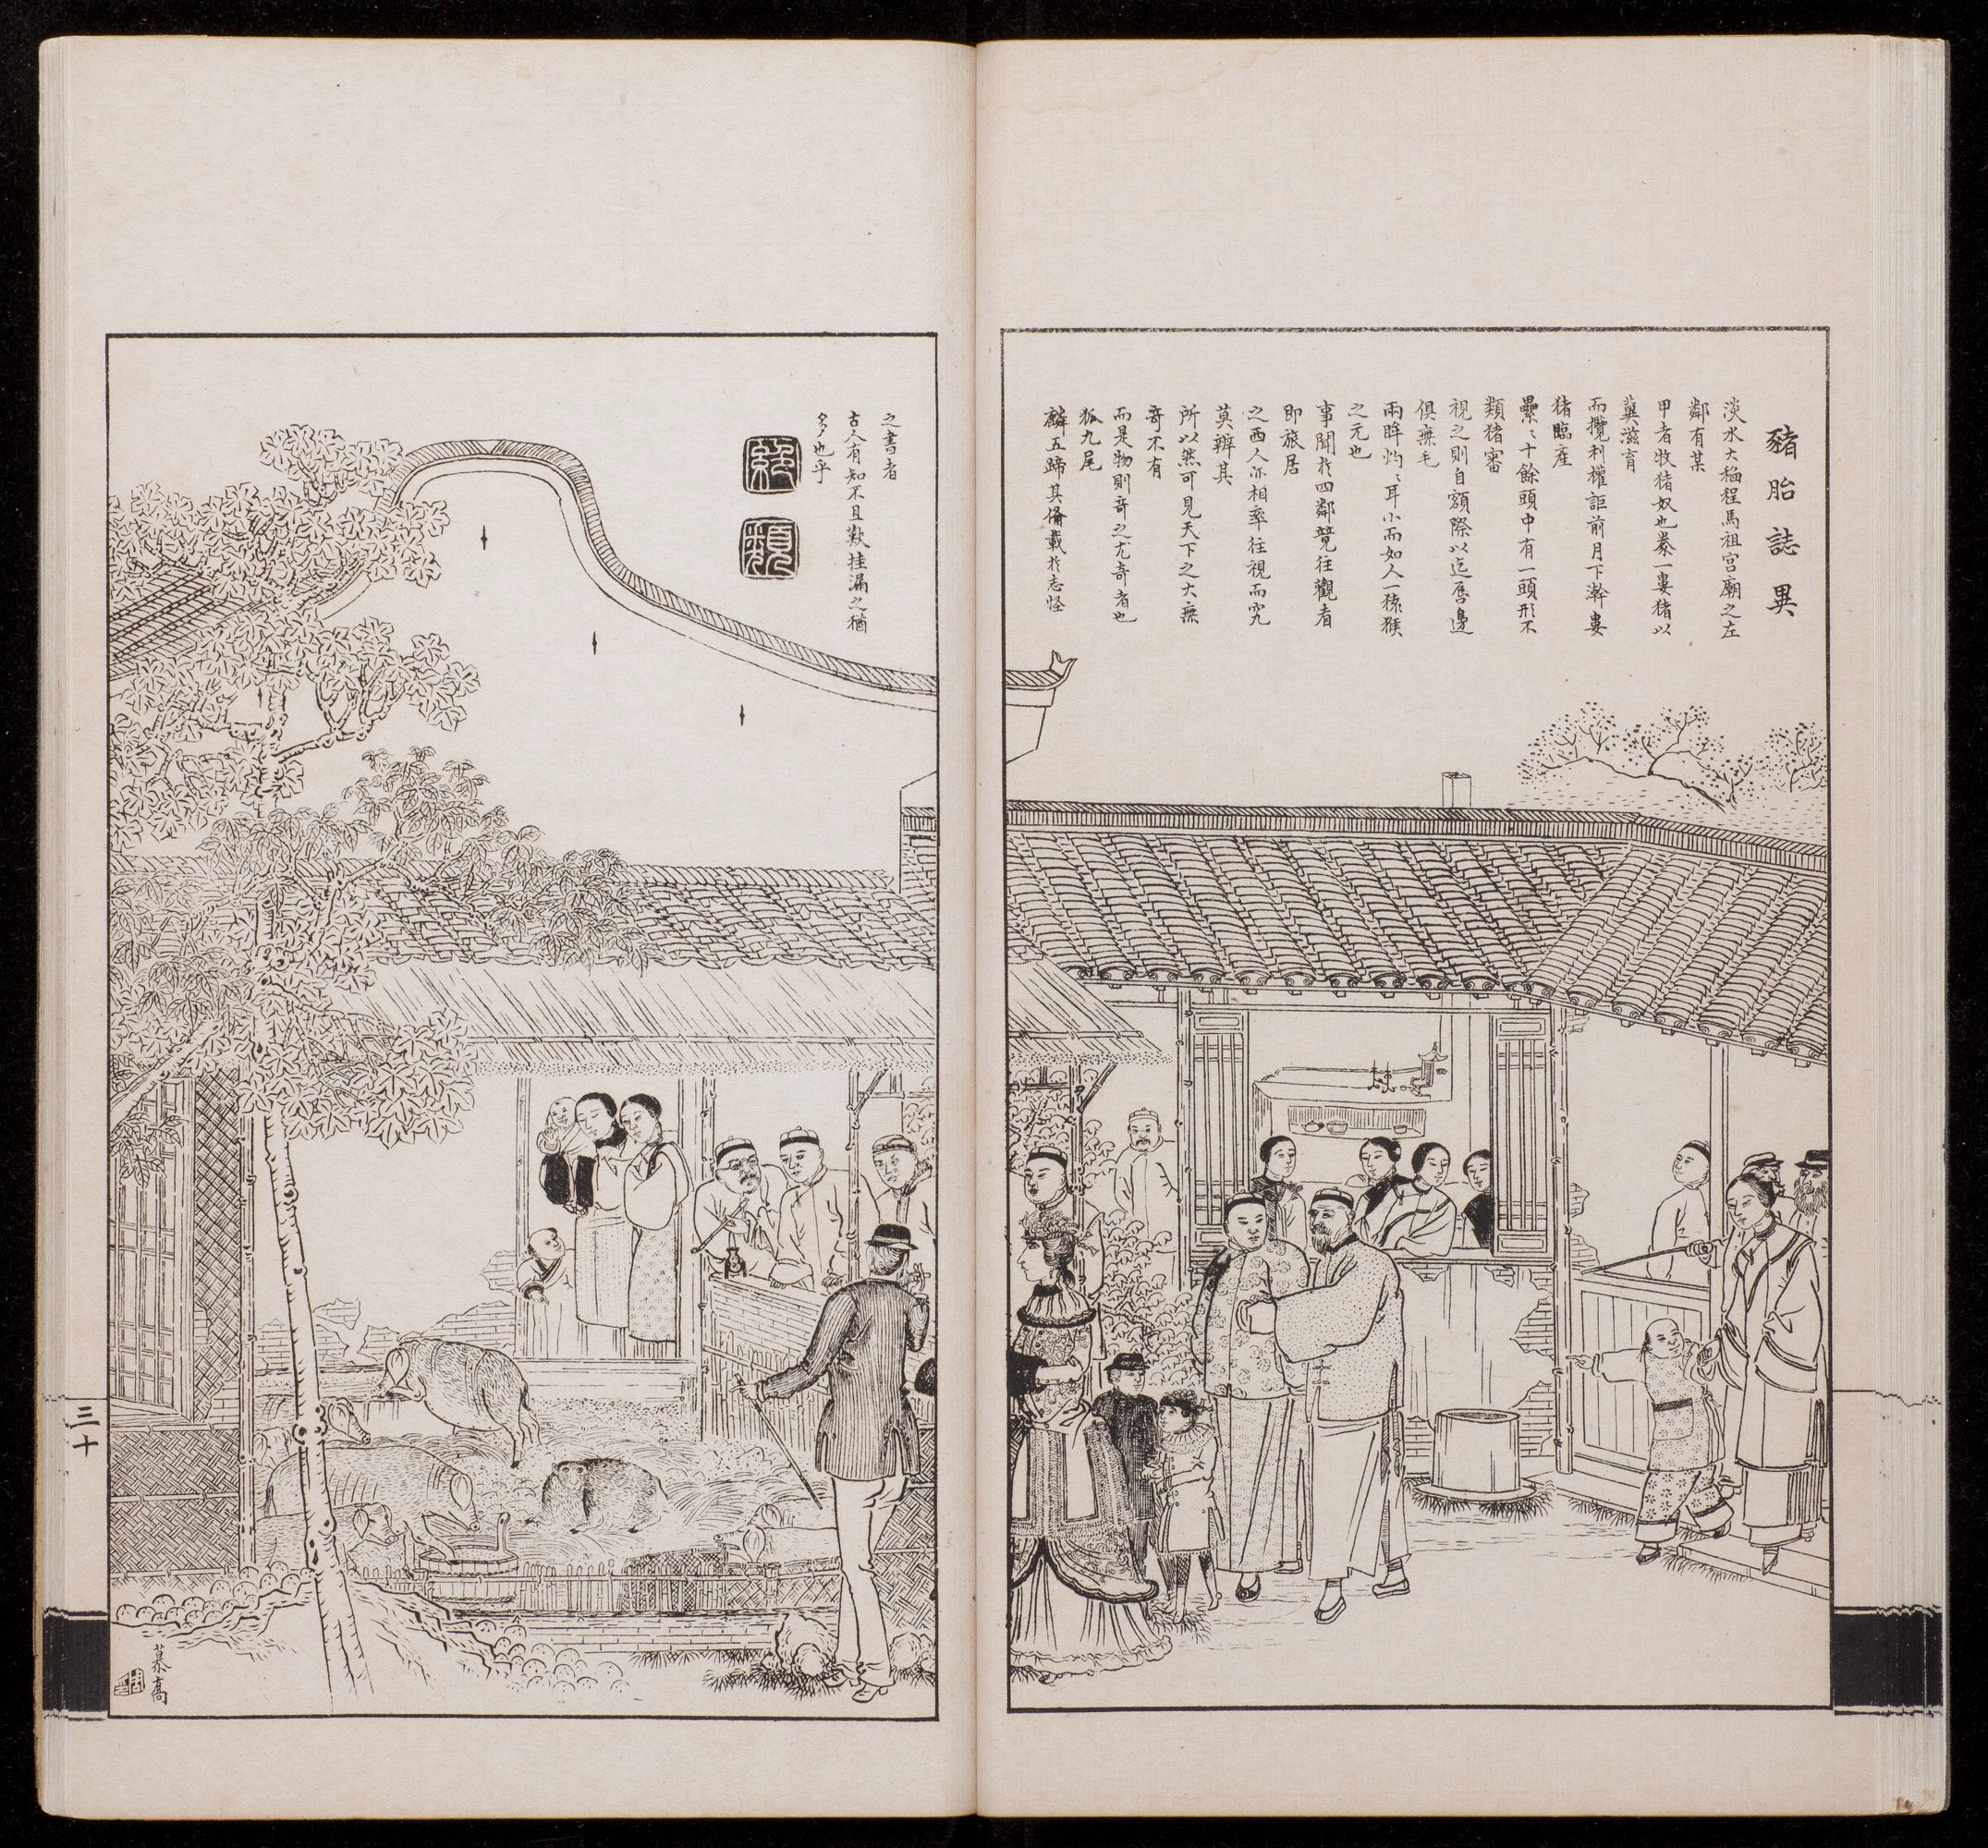 豬胎誌異
淡水大稲程馬祖宮廟之左
鄰有某
甲者牧猪奴也豢一婁猪以
冀滋育
而攬利權詎前月下澣婁
猪臨產
纍〻十餘頭中有一頭形不
類猪審
視之則自額際以迄唇邊
俱無毛
兩眸灼〻耳小而如人一猿猴
之元也
事聞於四鄰競往觀者
即旅居
之西人亦相率往視而究
莫辨其
所以然可見天下之大無
奇不有
而是物則奇之尤奇者也
狐九尾
麟五蹄其俻載於志怪
之書者
古人有知不且歎挂漏之猶
多也乎
絕
類
慕喬
三十